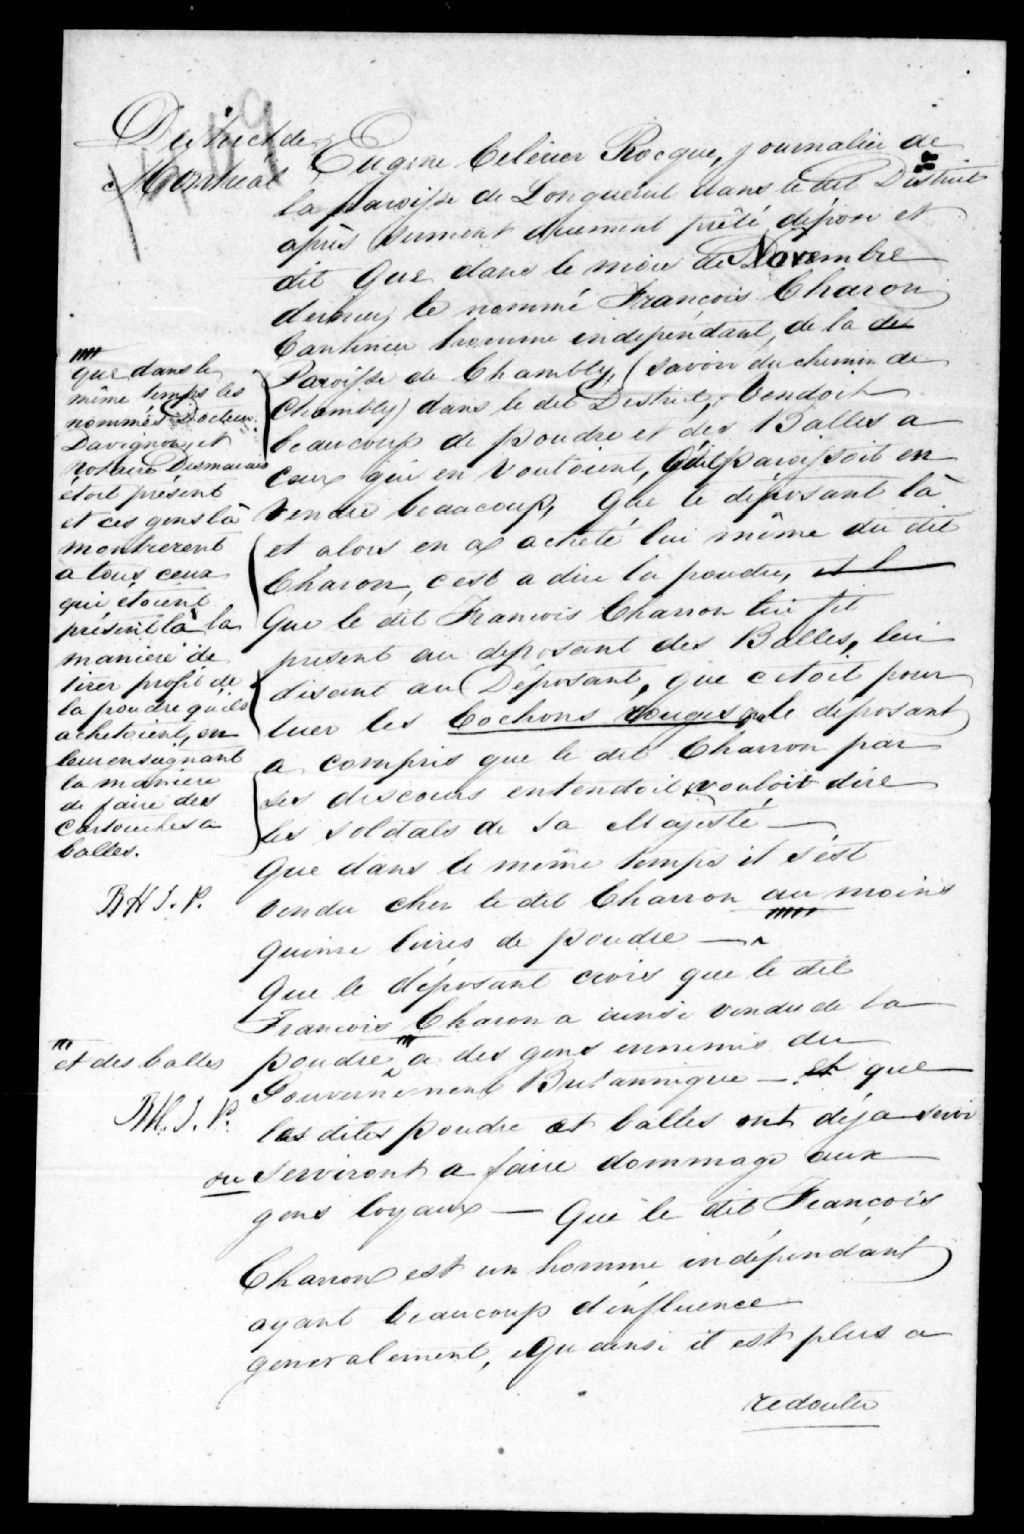 District de
Montréal
Eugene Celerier Rocque, journalier de
la paroisse de Longueuil dans le dit District
après serment duement prêté dépose et
dit Que dans le mois de Novembre
dernier, le nommé François Charon
Cantinier homme indépendant, de la
Paroisse de Chambly, (Savoir du chemin de
Chambly) dans le dit District, Vendoit
beaucoup de poudre et des Balles a
ceux qui en Vouloient, qu'il paroissoit en
vendre beaucoup, Que le déposant là
et alors en a acheté lui même du dit
Charon, c'est a dire la poudre, et l
Que le dit Francois Charron lui fit
present au deposant des Balles, lui
disant au Déposant, que c'etoit pour
tuer les Cochons rouges que le deposant
a compris que le dit Charron par
ses discours entendoit vouloit dire
les soldats de Sa Majesté —
Que dans le même temps il s'est
vendu chez le dit Charron au moins
quinze livres de poudre —
Que le déposant crois que le dit
Francois Charon a ainsi vendu de la
poudre a des gens ennemis du
Gouvernement Britannique — et que
les dites poudre et balles ont déja servi
ou serviront a faire dommage aux
gens loyaux — Que le dit François
Charron est un homme indépendant
ayant beaucoup d'influence
generalement, Qu'ainsi il est plus a
redouter
que dans le
même temps les
nommés Docteur
Davignon, et
Notaire Desmarais
étoit présent
et ces gens là
montrerent
a tous ceux
qui étoient
présent là la
maniere de
tirer profit de
la poudre qu'ils
achetoient, en
leur enseignant
la maniere
de faire des
Cartouches a
balles.
B H J. P.
et des balles
B H. J. P.